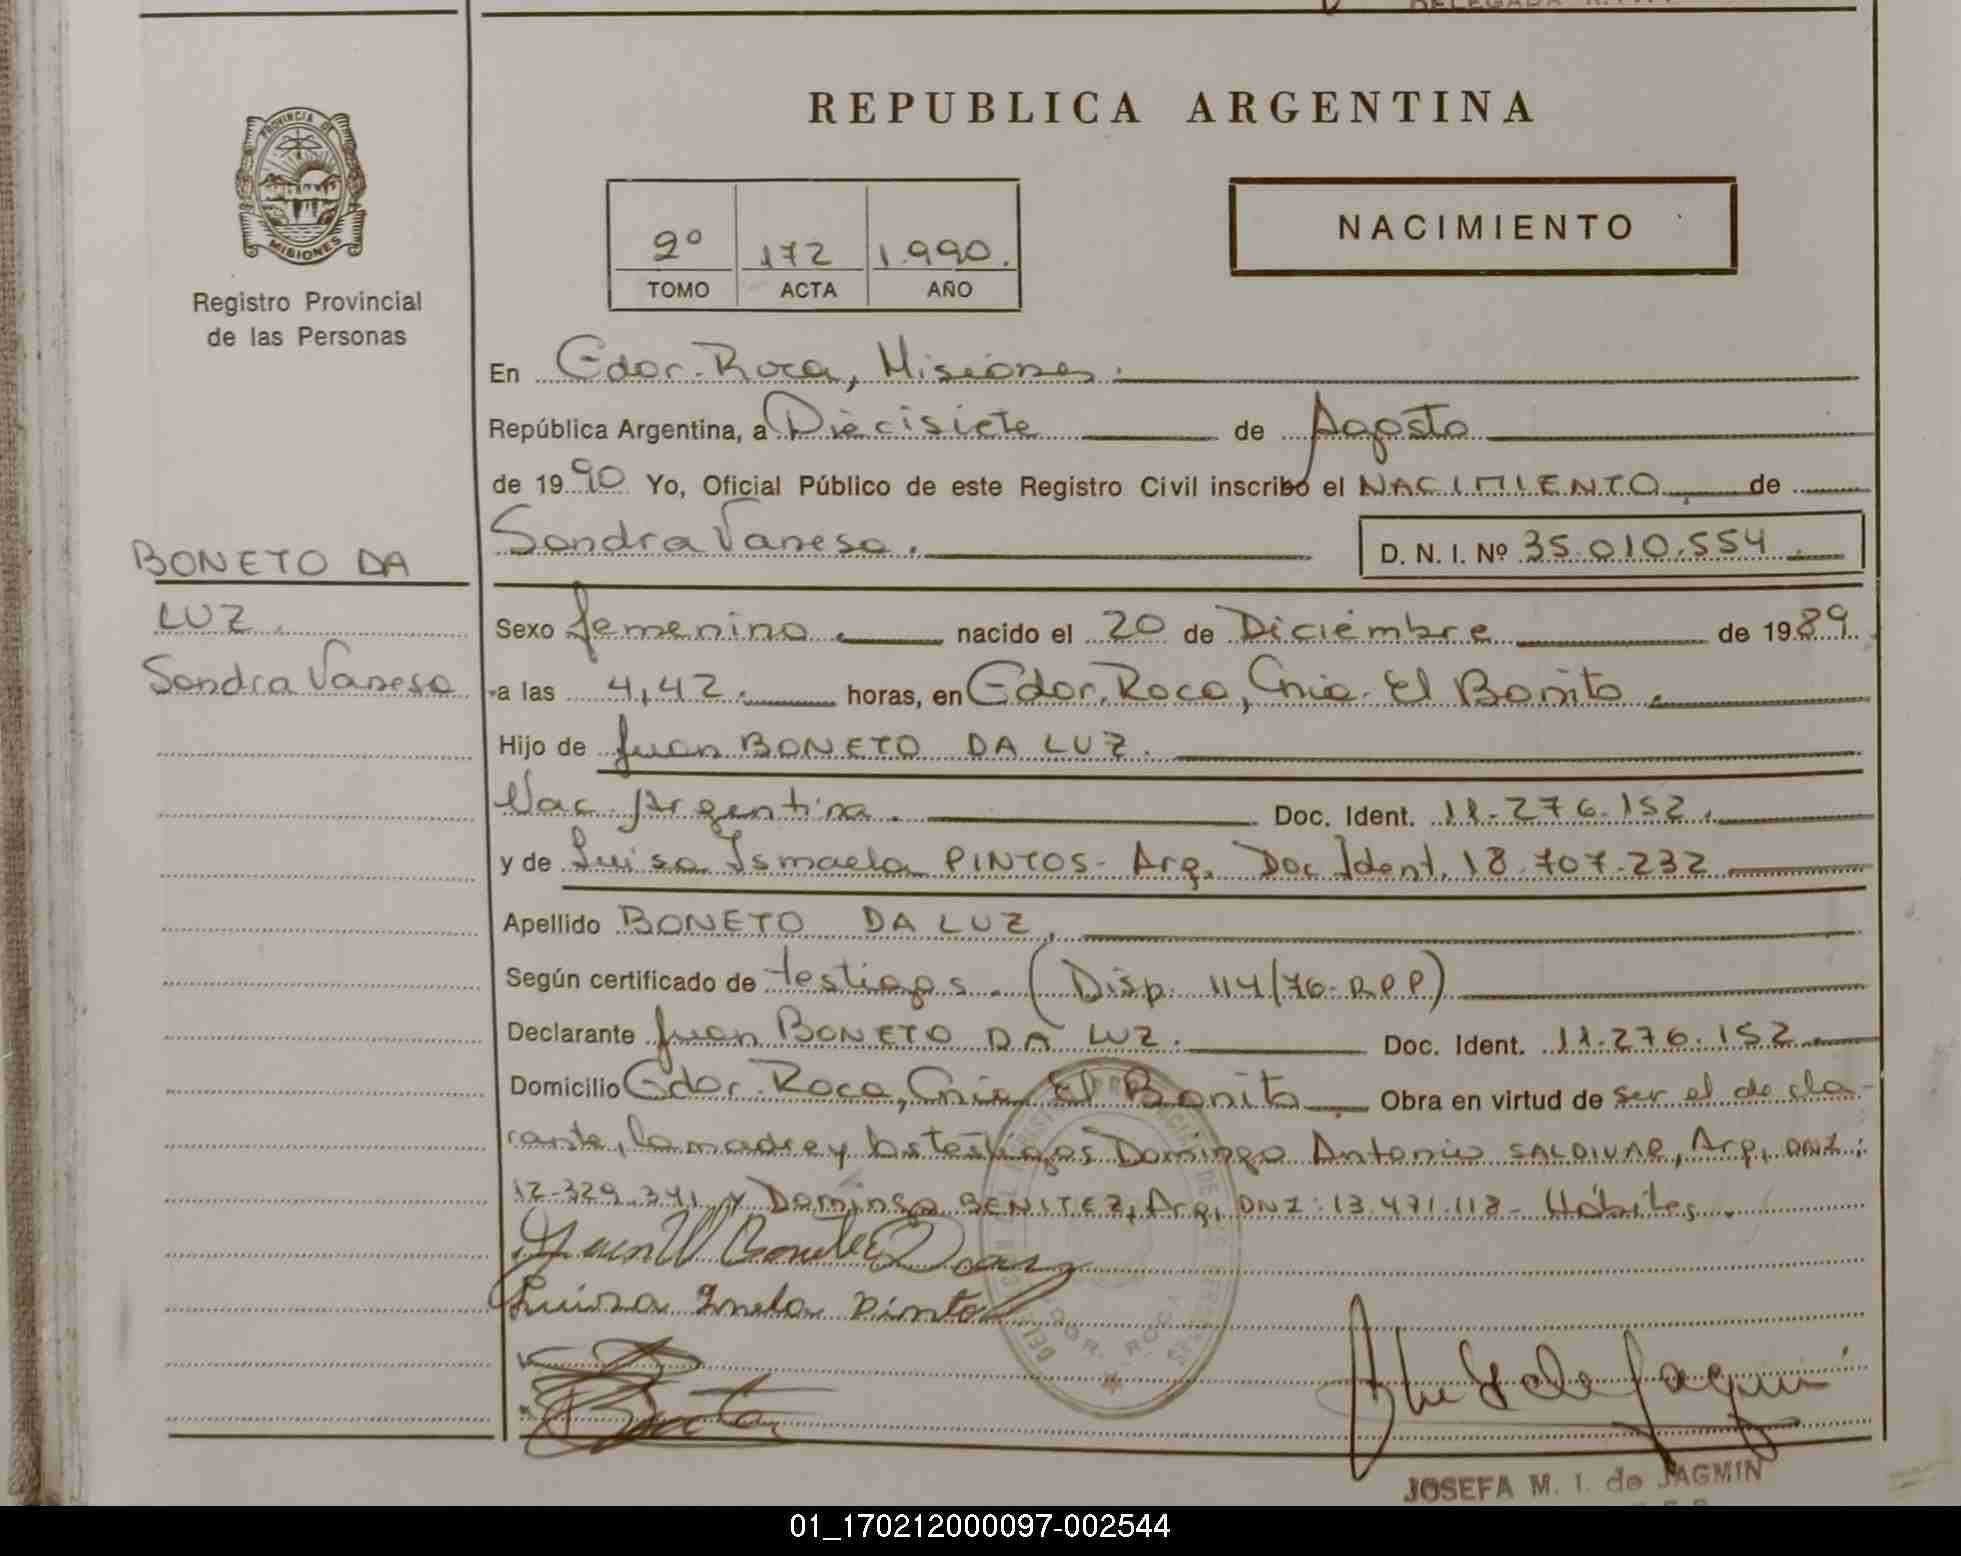 REPUBLICA ARGENTINA
PROVINCIA DE
MISIONES
Registro Provincial
de las Personas
2º 172 1.990.
TOMO ACTA AÑO
NACIMIENTO
En Gdor. Roca, Misiones.
República Argentina, a Diecisiete de Agosto
de 1990 Yo, Oficial Público de este Registro Civil inscribo el NACIMIENTO de
Sandra Vanesa. D. N. I. Nº 35.010.554
BONETO DA
LUZ.
Sandra Vanesa
Sexo femenino. nacido el 20 de Diciembre de 1989.
a las 4,42. horas, en Gdor. Roca, Cnia. El Bonito.
Hijo de Juan BONETO DA LUZ.
Nac. Argentina. Doc. Ident. 11.276.152.
y de Luisa Ismaela PINTOS- Arg. Doc Ident. 18.707.232
Apellido BONETO DA LUZ.
Según certificado de testigos. (Disp. 114/76-RPP)
Declarante Juan BONETO DA LUZ. Doc. Ident. 11.276.152.
Domicilio Gdor. Roca, Cnia El Bonito Obra en virtud de ser el decla-
rante, la madre y los testigos Domingo Antonio SALDIVAR, Arg. DNI:
12.329.341 y Domingo BENITEZ, Arg, DNI: 13.471.118- Hábiles.
GDOR. ROCA
JOSEFA M. I. de JAGMIN
01_170212000097-002544